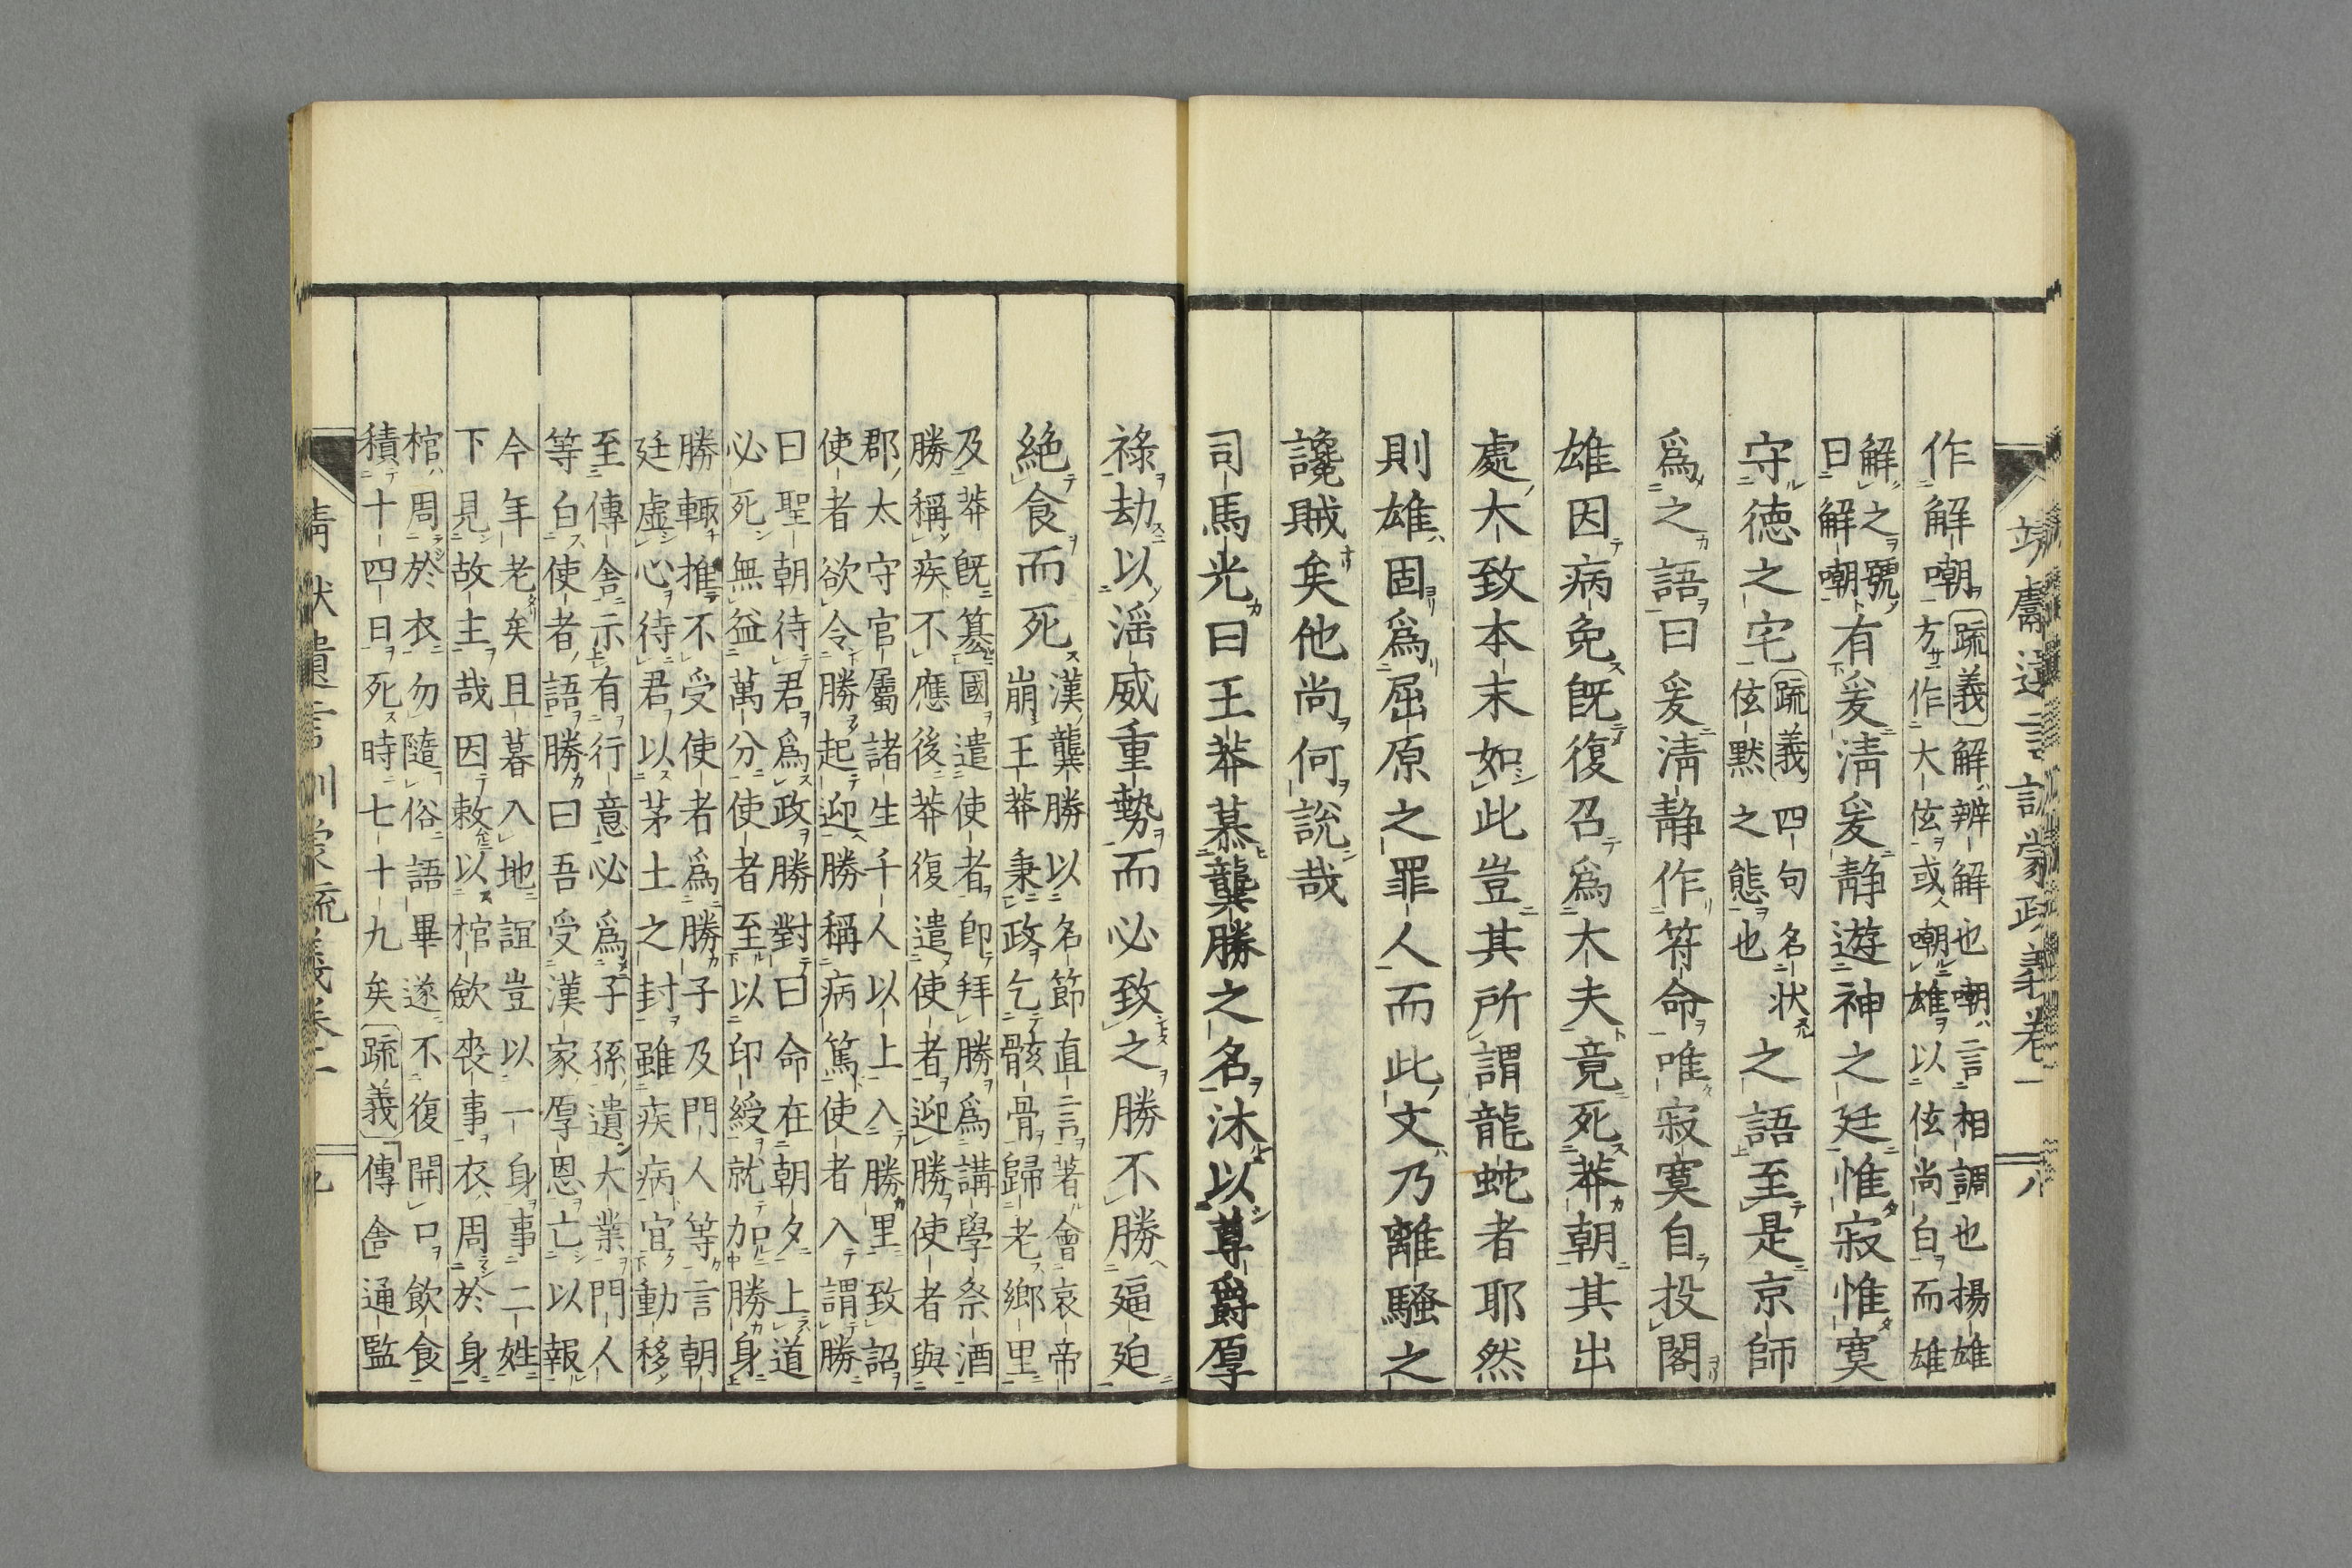 靖獻遺言訓蒙疏義卷二 八
作解嘲 疏義 解辨解也嘲言相調也揚雄
方作大伭或嘲雄以伭尚白而雄
解之號
曰解嘲 有爰淸爰靜遊神之廷惟寂惟寞
守德之宅 疏義 四句名狀
伭默之態也 之語至是京師
爲之語曰爰淸靜作符命唯寂寞自投閣
雄因病免旣復召爲大夫竟死莽朝其出
處大致本末如此豈其所謂龍蛇者耶然
則雄固爲屈原之罪人而此文乃離騷之
讒賊矣他尚何說哉
司馬光曰王莽慕龔勝之名沐以尊爵厚
祿劫以滛威重勢而必致之勝不勝逼廹
絶食而死 漢龔勝以名節直言著會哀帝
崩王莽秉政乞骸骨歸老鄉里
及莽旣簒國遣使者卽拜勝爲講學祭酒
勝稱疾不應後莽復遣使者迎勝使者與
郡太守官屬諸生千人以上入勝里致詔
使者欲令勝起迎勝稱病篤使者入謂勝
曰聖朝待君爲政勝對曰命在朝夕上道
必死無益萬分使者至以印綬就加勝身
勝輙推不受使者爲勝子及門人等言朝
廷虛心待君以茅土之封雖疾病宜動移
至傳舍示有行意必爲子孫遺大業門人
等白使者語勝曰吾受漢家厚恩亡以報
今年老矣且暮入地誼豈以一身事二姓
下見故主哉因敕以棺歛喪事衣周於身
棺周於衣勿隨俗語畢遂不復開口飮食
積十四日死時七十九矣 疏義 傳舍通監
靖獻遺言訓蒙疏義卷二 九